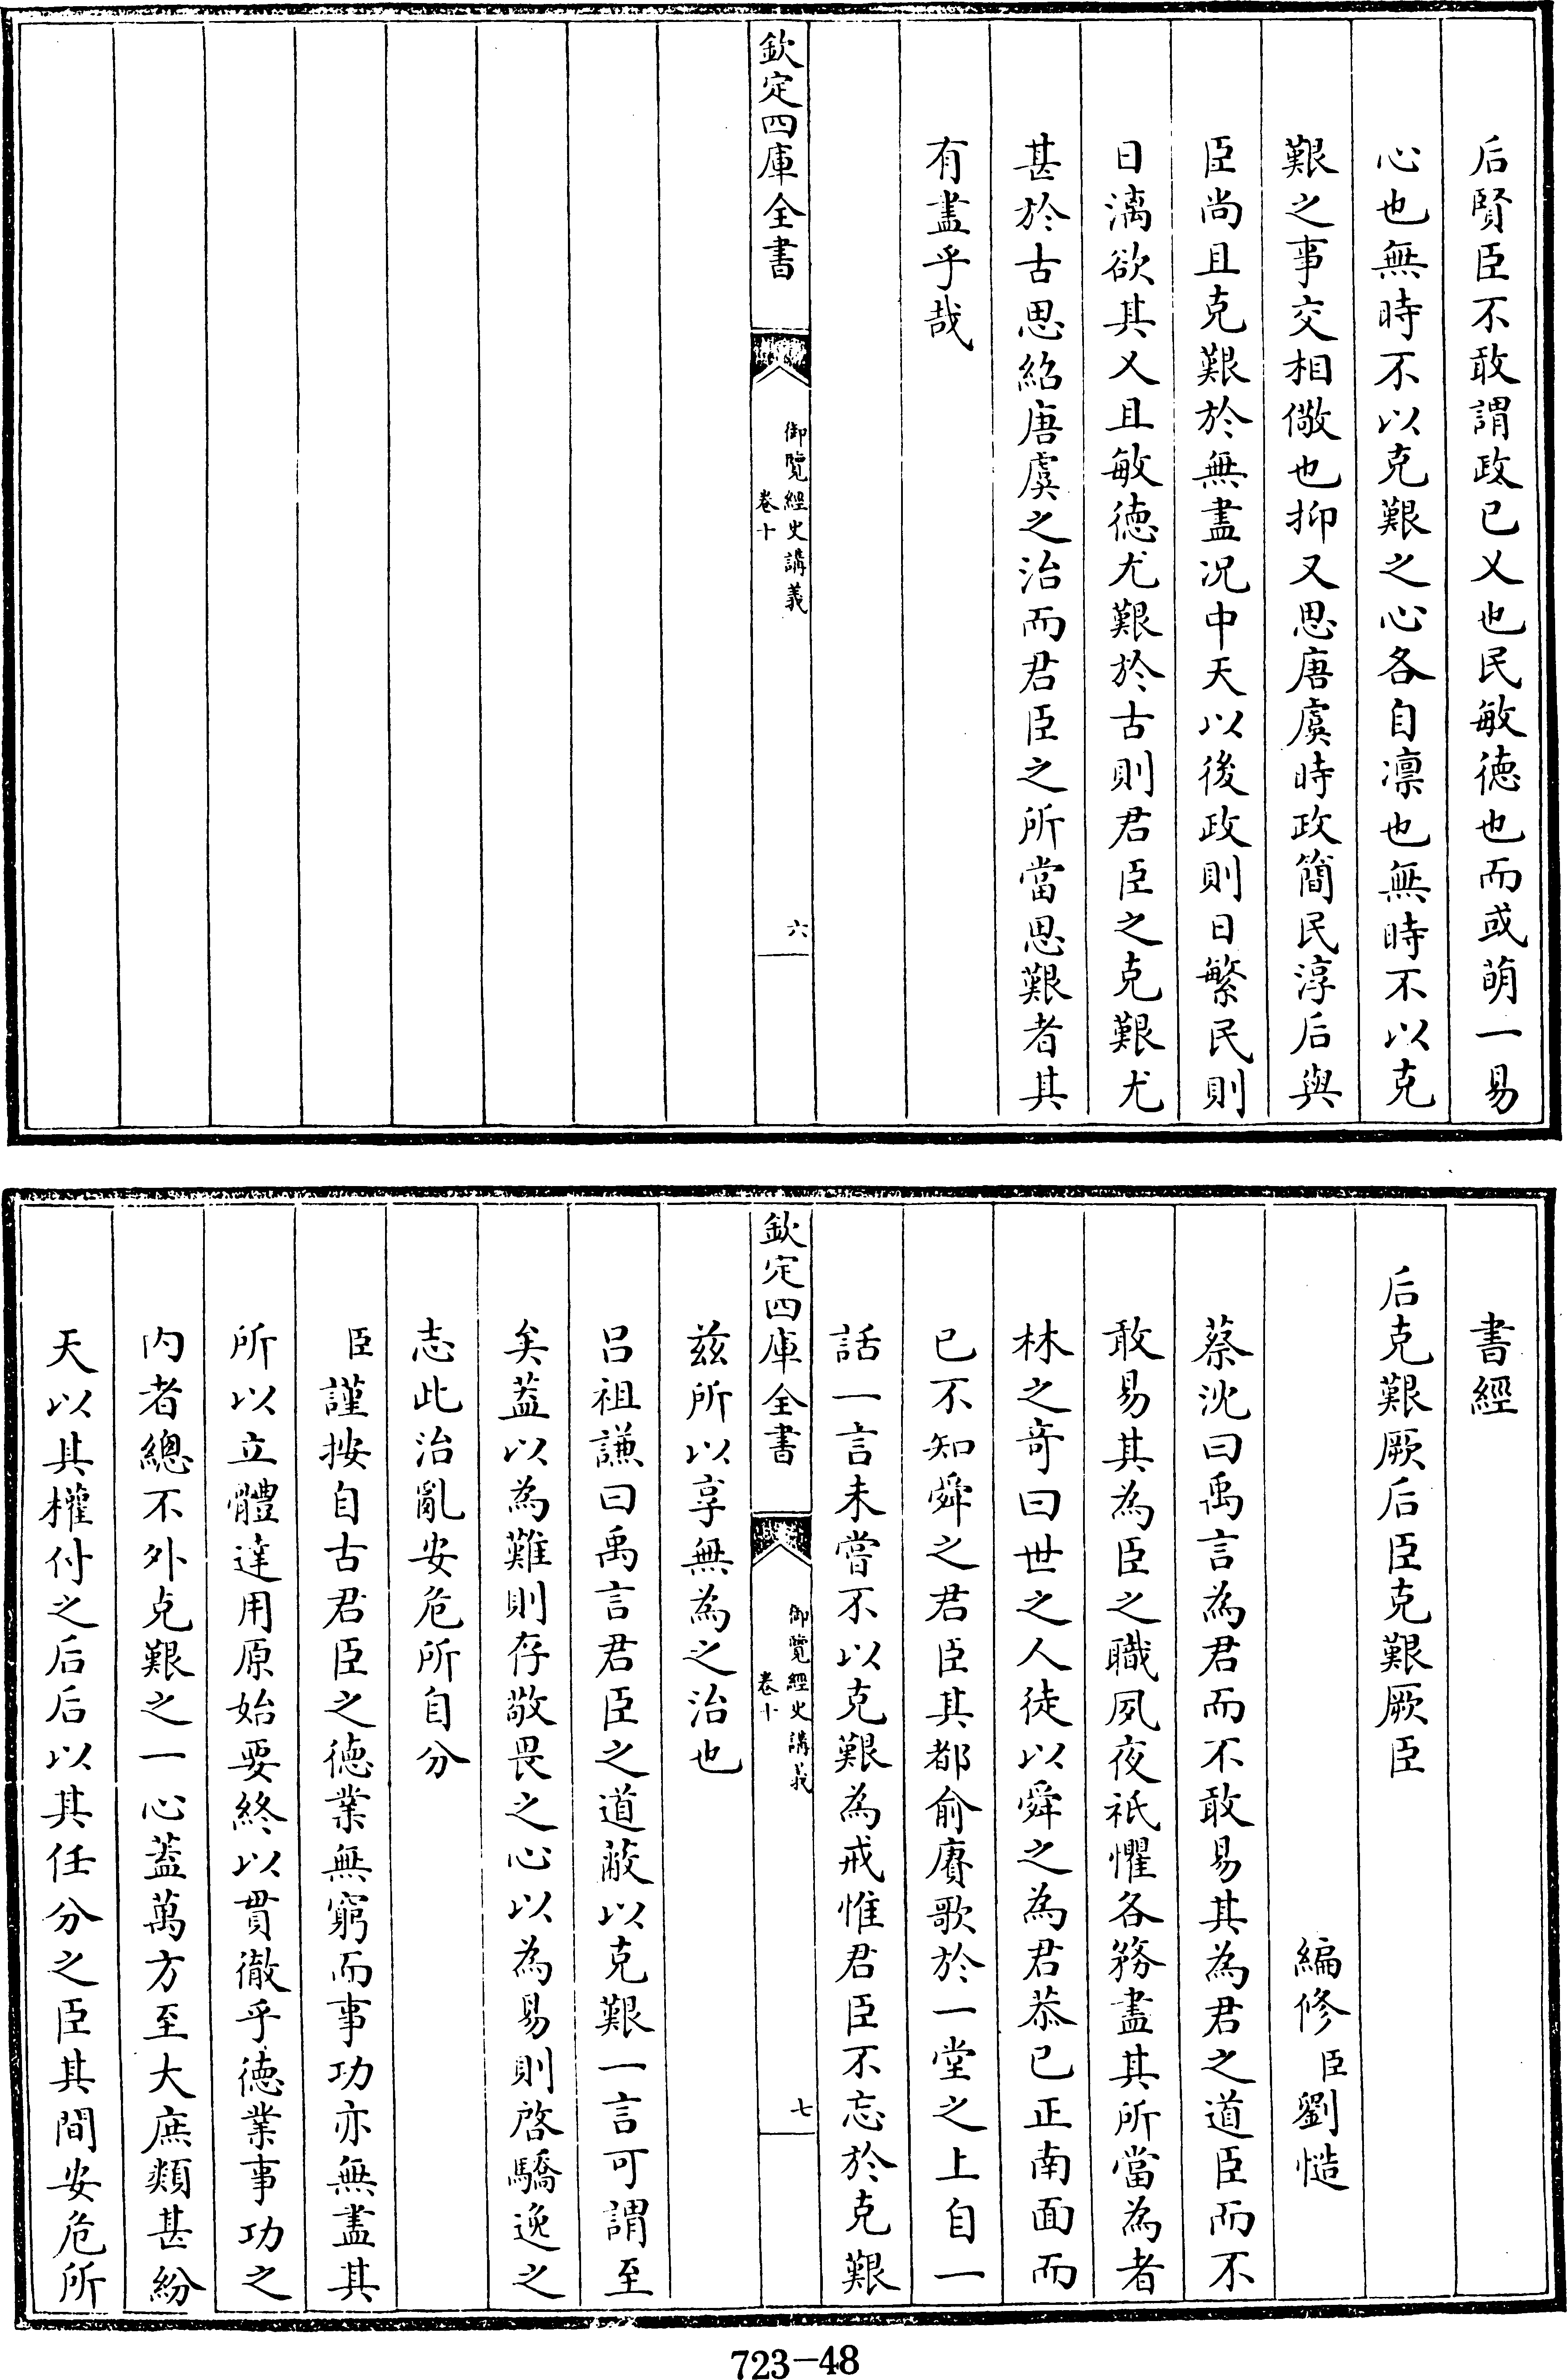 后賢臣不敢謂政已乂也民敏徳也而或萌一易
心也無時不以克艱之心各自凛也無時不以克
艱之事交相儆也抑又思唐虞時政簡民淳后與
臣尚且克艱於無盡况中天以後政則日繁民則
日漓欲其乂且敏徳尤艱於古則君臣之克艱尤
甚於古思紹唐虞之治而君臣之所當思艱者其
有盡乎哉
欽定四庫全書
御覽經史講義
卷十
六
書經
后克艱厥后臣克艱厥臣
編修臣劉慥
蔡沈曰禹言為君而不敢易其為君之道臣而不
敢易其為臣之職夙夜祇懼各務盡其所當為者
林之竒曰世之人徒以舜之為君恭已正南面而
已不知舜之君臣其都俞賡歌於一堂之上自一
話一言未嘗不以克艱為戒惟君臣不忘於克艱
兹所以享無為之治也
欽定四庫全書
御覽經史講義
卷十
七
吕祖謙曰禹言君臣之道蔽以克艱一言可謂至
矣葢以為難則存敬畏之心以為易則啓驕逸之
志此治亂安危所自分
臣謹按自古君臣之徳業無窮而事功亦無盡其
所以立體達用原始要終以貫徹乎徳業事功之
内者總不外克艱之一心葢萬方至大庶類甚紛
天以其權付之后后以其任分之臣其間安危所
723-48